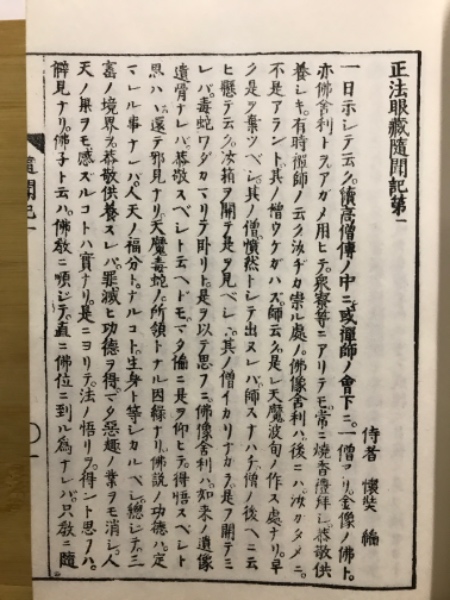 正法眼藏隨聞記第一
侍者 懷奘 編
一日示シテ云ク續高僧傳ノ中ニ或禪師ノ會下ニ一僧アリ金像ノ佛ト
亦佛舍利トヲアガメ用ヒテ衆寮等ニアリテモ常ニ燒香禮拜シ恭敬供
養シキ有時禪師ノ云ク汝ヂカ崇ル處ノ佛像舍利ハ後ニハ汝ガタメニ
不是アラント其ノ僧ウケガハズ師云ク是レ天魔波旬ノ作ス處ナリ早
ク是ヲ棄ツベシ其ノ僧憤然トシテ出ヌレバ師スナハチ僧ノ後ヘニ云
ヒ懸テ云ク汝箱ヲ開テ是ヲ見ベシ其ノ僧イカリナガラ是ヲ開テミ
レバ毒蛇ワダカマリテ卧リト是ヲ以テ思フニ佛像舍利ハ如來ノ遺像
遺骨ナレバ恭敬スベシト云ヘドモマタ偏ニ是ヲ仰ヒテ得悟スベシト
思ハヾ還テ邪見ナリ天魔毒蛇ノ所領トナル因縁ナリ佛說ノ功德ハ定
マレル事ナレバ人天ノ福分トナルコト生身ト等シカルベシ總シテ三
寳ノ境界ヲ恭敬供養スレバ罪滅ヒ功德ヲ得マタ惡趣ノ業ヲモ消シ人
天ノ果ヲモ感ズルコトハ實ナリ是ニヨリテ法ノ悟リヲ得ント思フハ
僻見ナリ佛子ト云ハ佛敎ニ順シテ直ニ佛位ニ到ル爲ナレバ只敎ニ隨
隨聞記一